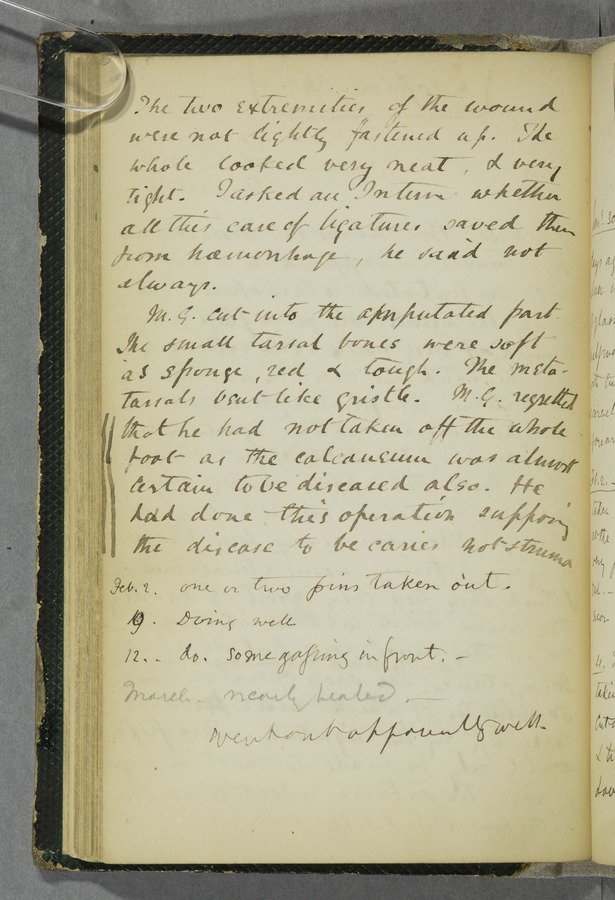 The two extremities of the wound
were not tightly fastened up. The
whole looked very neat, & very
tight. I asked an Intern whether
all this care of ligatures saved them
from hæmorrhage, he said not
always.
M. G. cut into the amputated part
The small tarsal bones were soft
as sponge, red & tough. The meta-
tarsals bent like gristle. M. G. regretted
that he had not taken off the whole
foot as the calcaneum was almost
certain to be diseased also. He
had done this operation supposing
the disease to be caries not struma
Feb. 2. one or two pins taken out.
Doing well
12. - do. some gaping in front. -
March. nearly healed. -
went out apparently well.